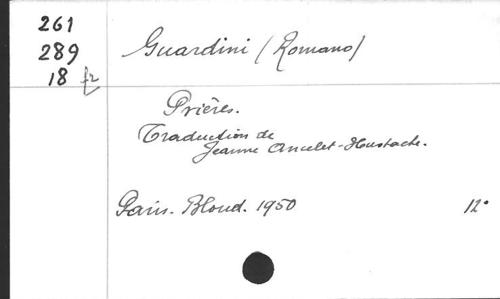 261
289
18 fr
Guardini (Romano)
Prières.
Traduction de
Jeanne Ancelet-Hustache.
Paris. Bloud. 1950
12°